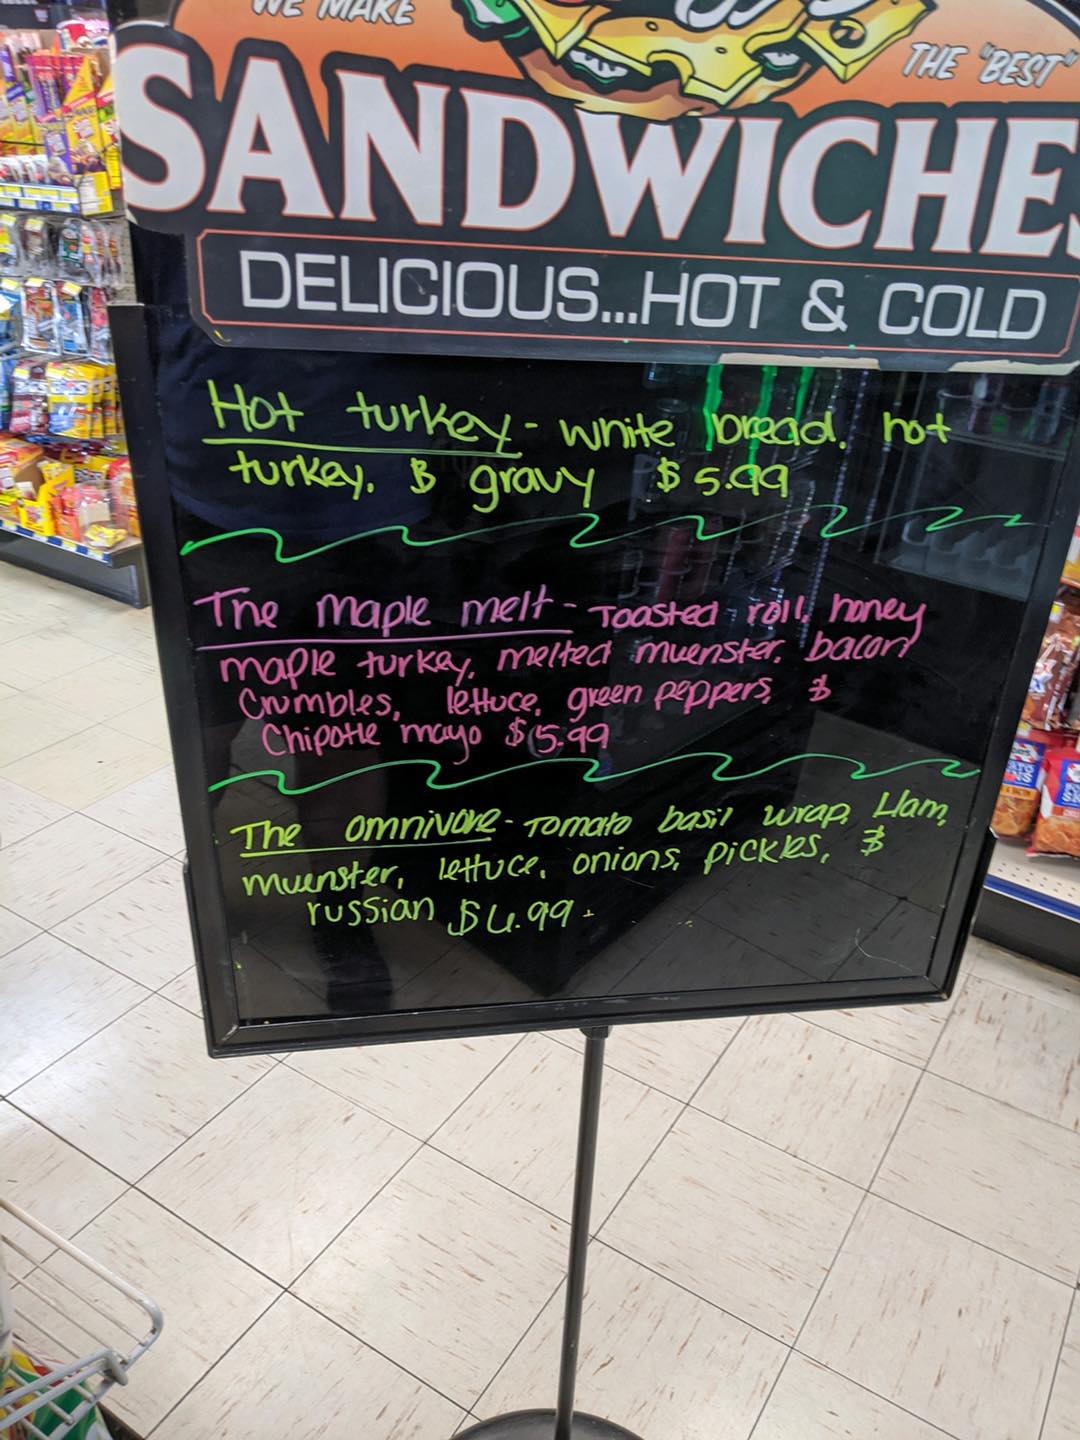 WE MAKE THE "BEST"
SANDWICHES
DELICIOUS...HOT & COLD
Hot turkey - white bread, hot
turkey, & gravy $5.99
The maple melt - Toasted roll, honey
maple turkey, melted muenster, bacon
Crumbles, lettuce, green peppers, &
Chipotle mayo $5.99
The omnivore - Tomato basil wrap, Ham,
muenster, lettuce, onions, pickles, &
russian $4.99